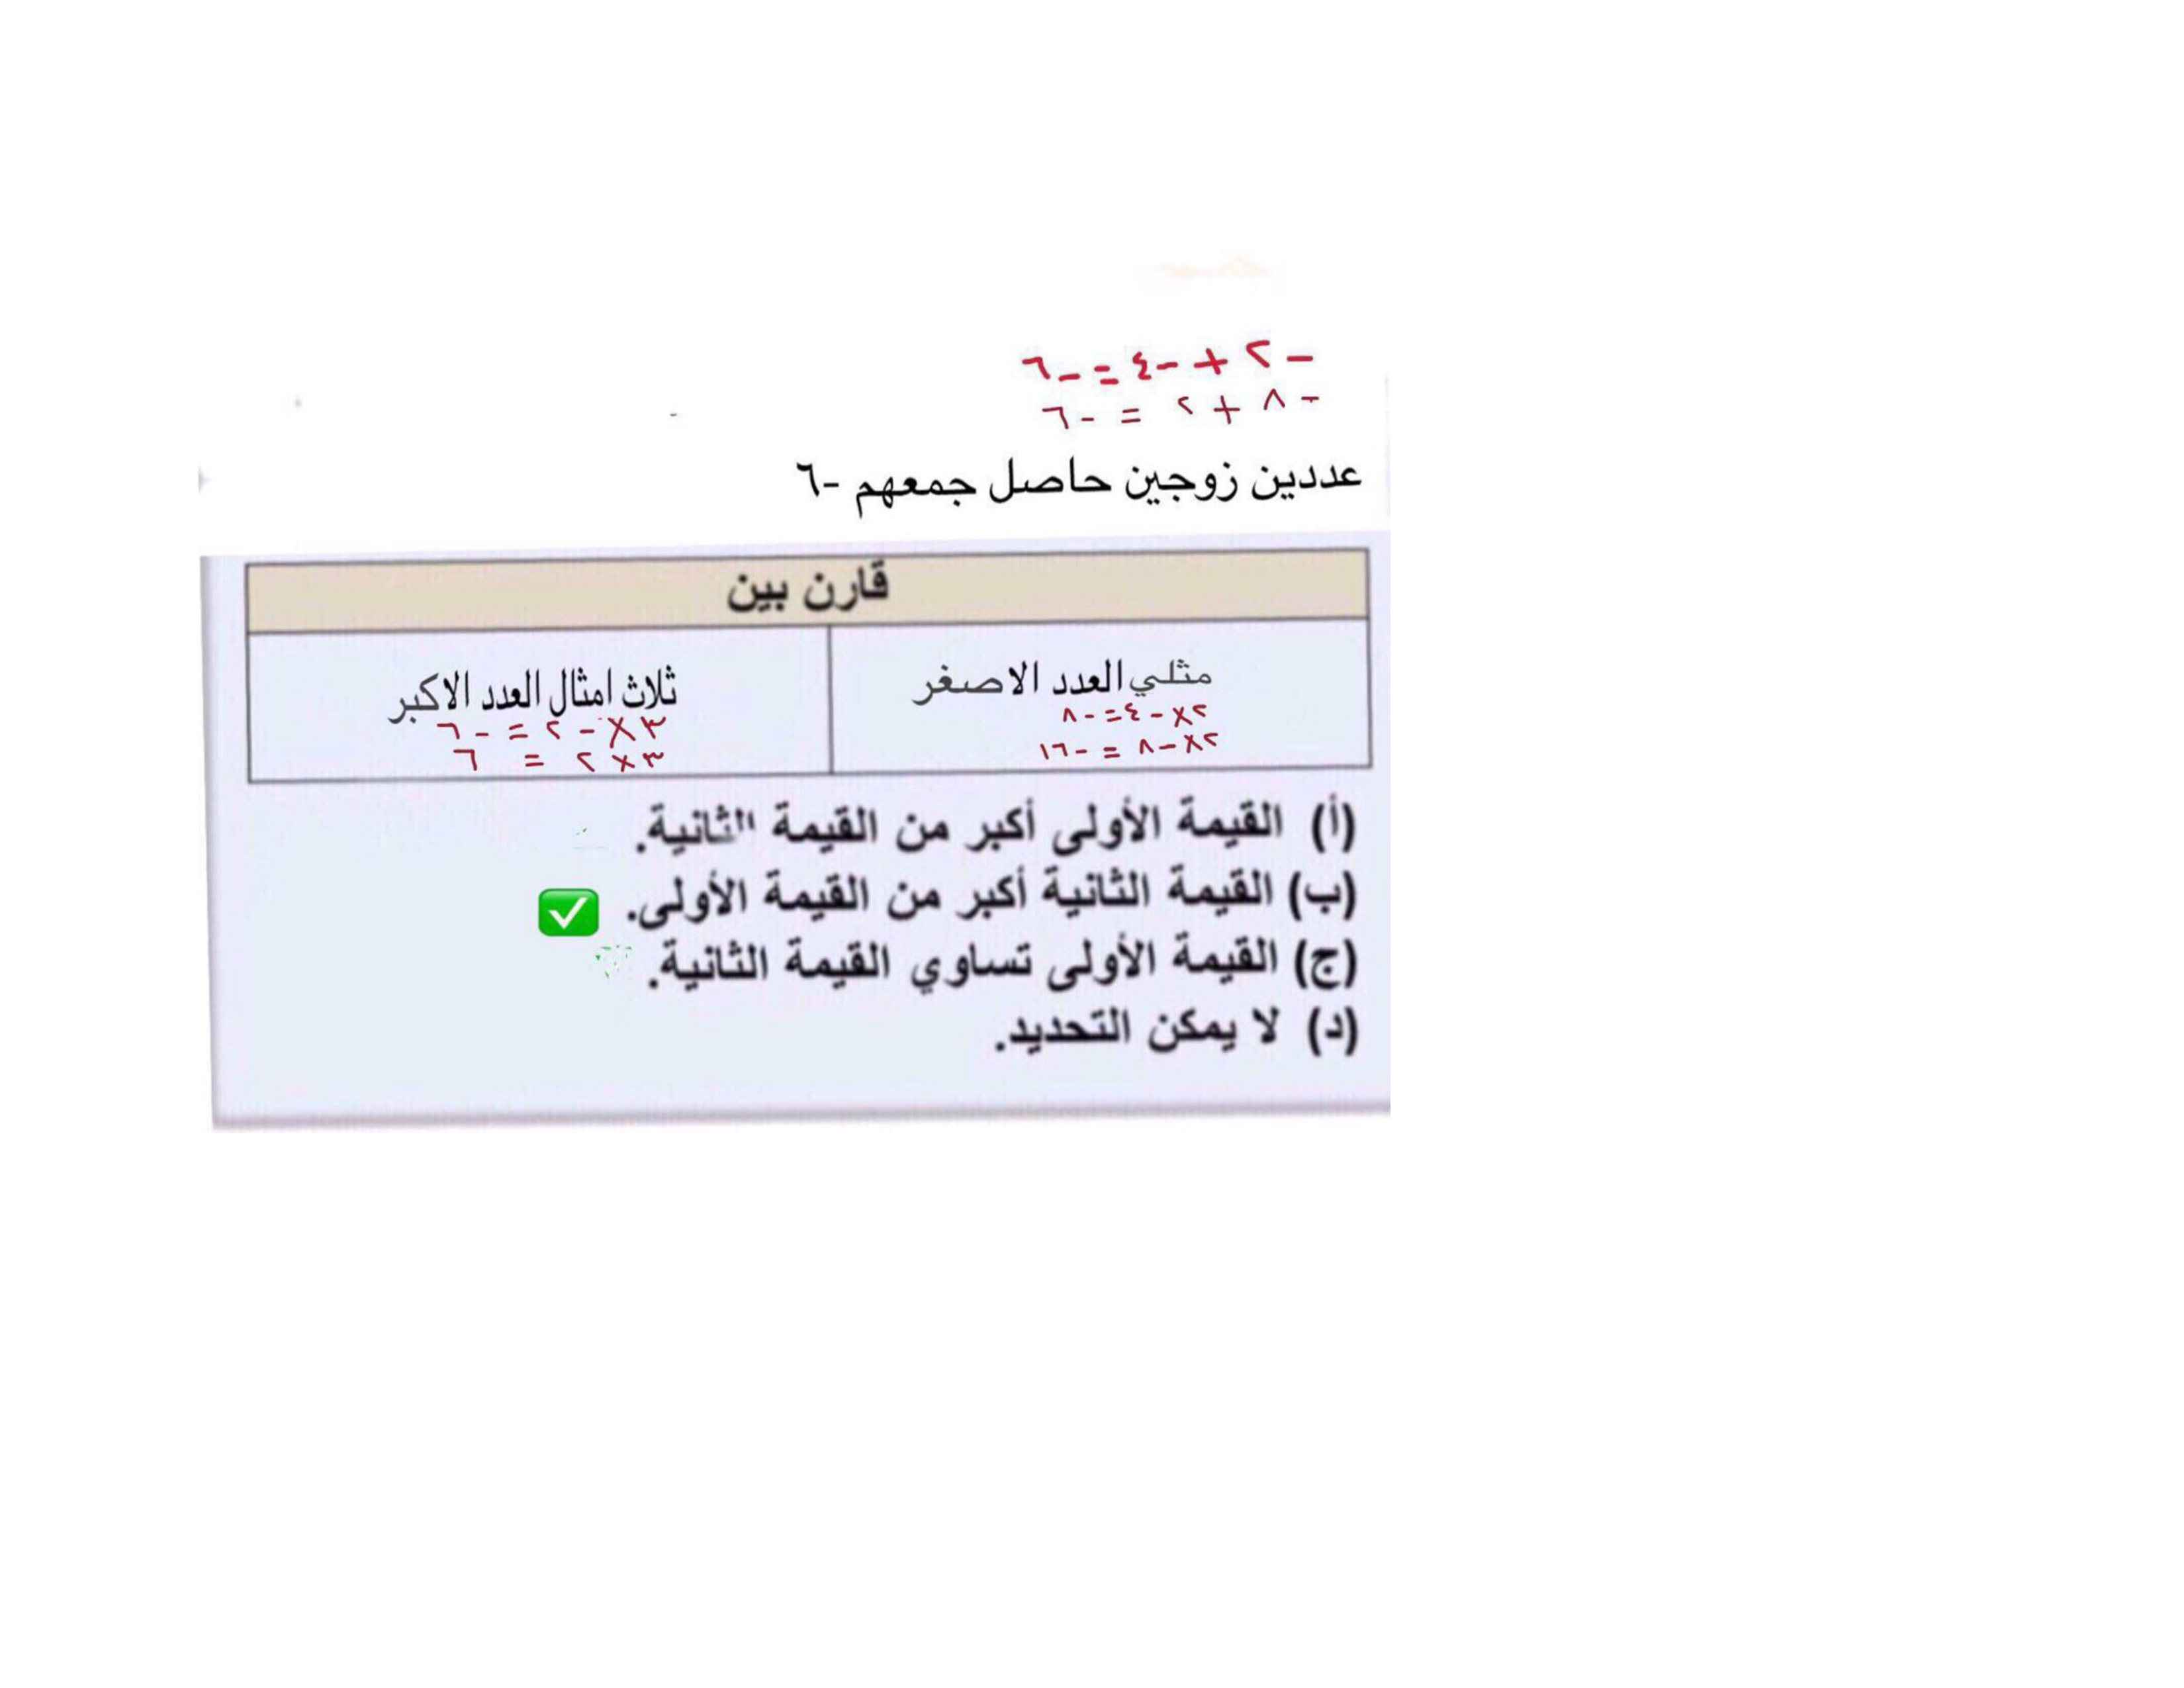 - ٢ + -٤ = -٦
- ٨ + ٢ = -٦
عددين زوجين حاصل جمعهم -٦
قارن بين
مثلي العدد الاصغر
٢×-٤=-٨
٢×-٨ = -١٦
ثلاث امثال العدد الاكبر
٣×-٢ = -٦
٣×٢ = ٦
(أ) القيمة الأولى أكبر من القيمة الثانية.
(ب) القيمة الثانية أكبر من القيمة الأولى.
(ج) القيمة الأولى تساوي القيمة الثانية.
(د) لا يمكن التحديد.